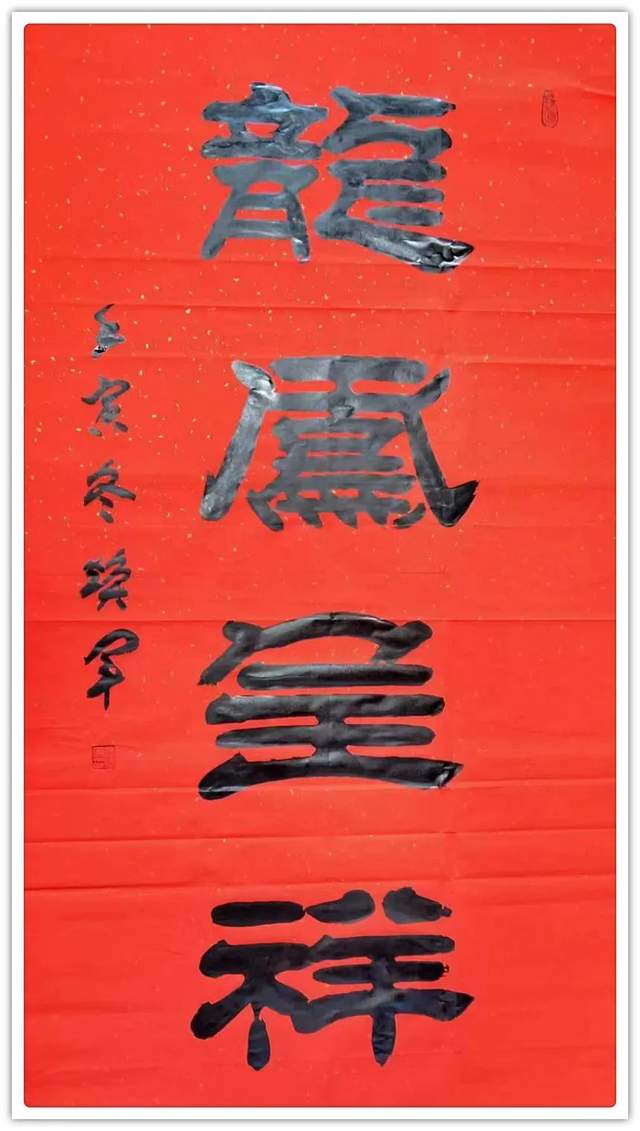 龍鳳呈祥
壬寅冬军